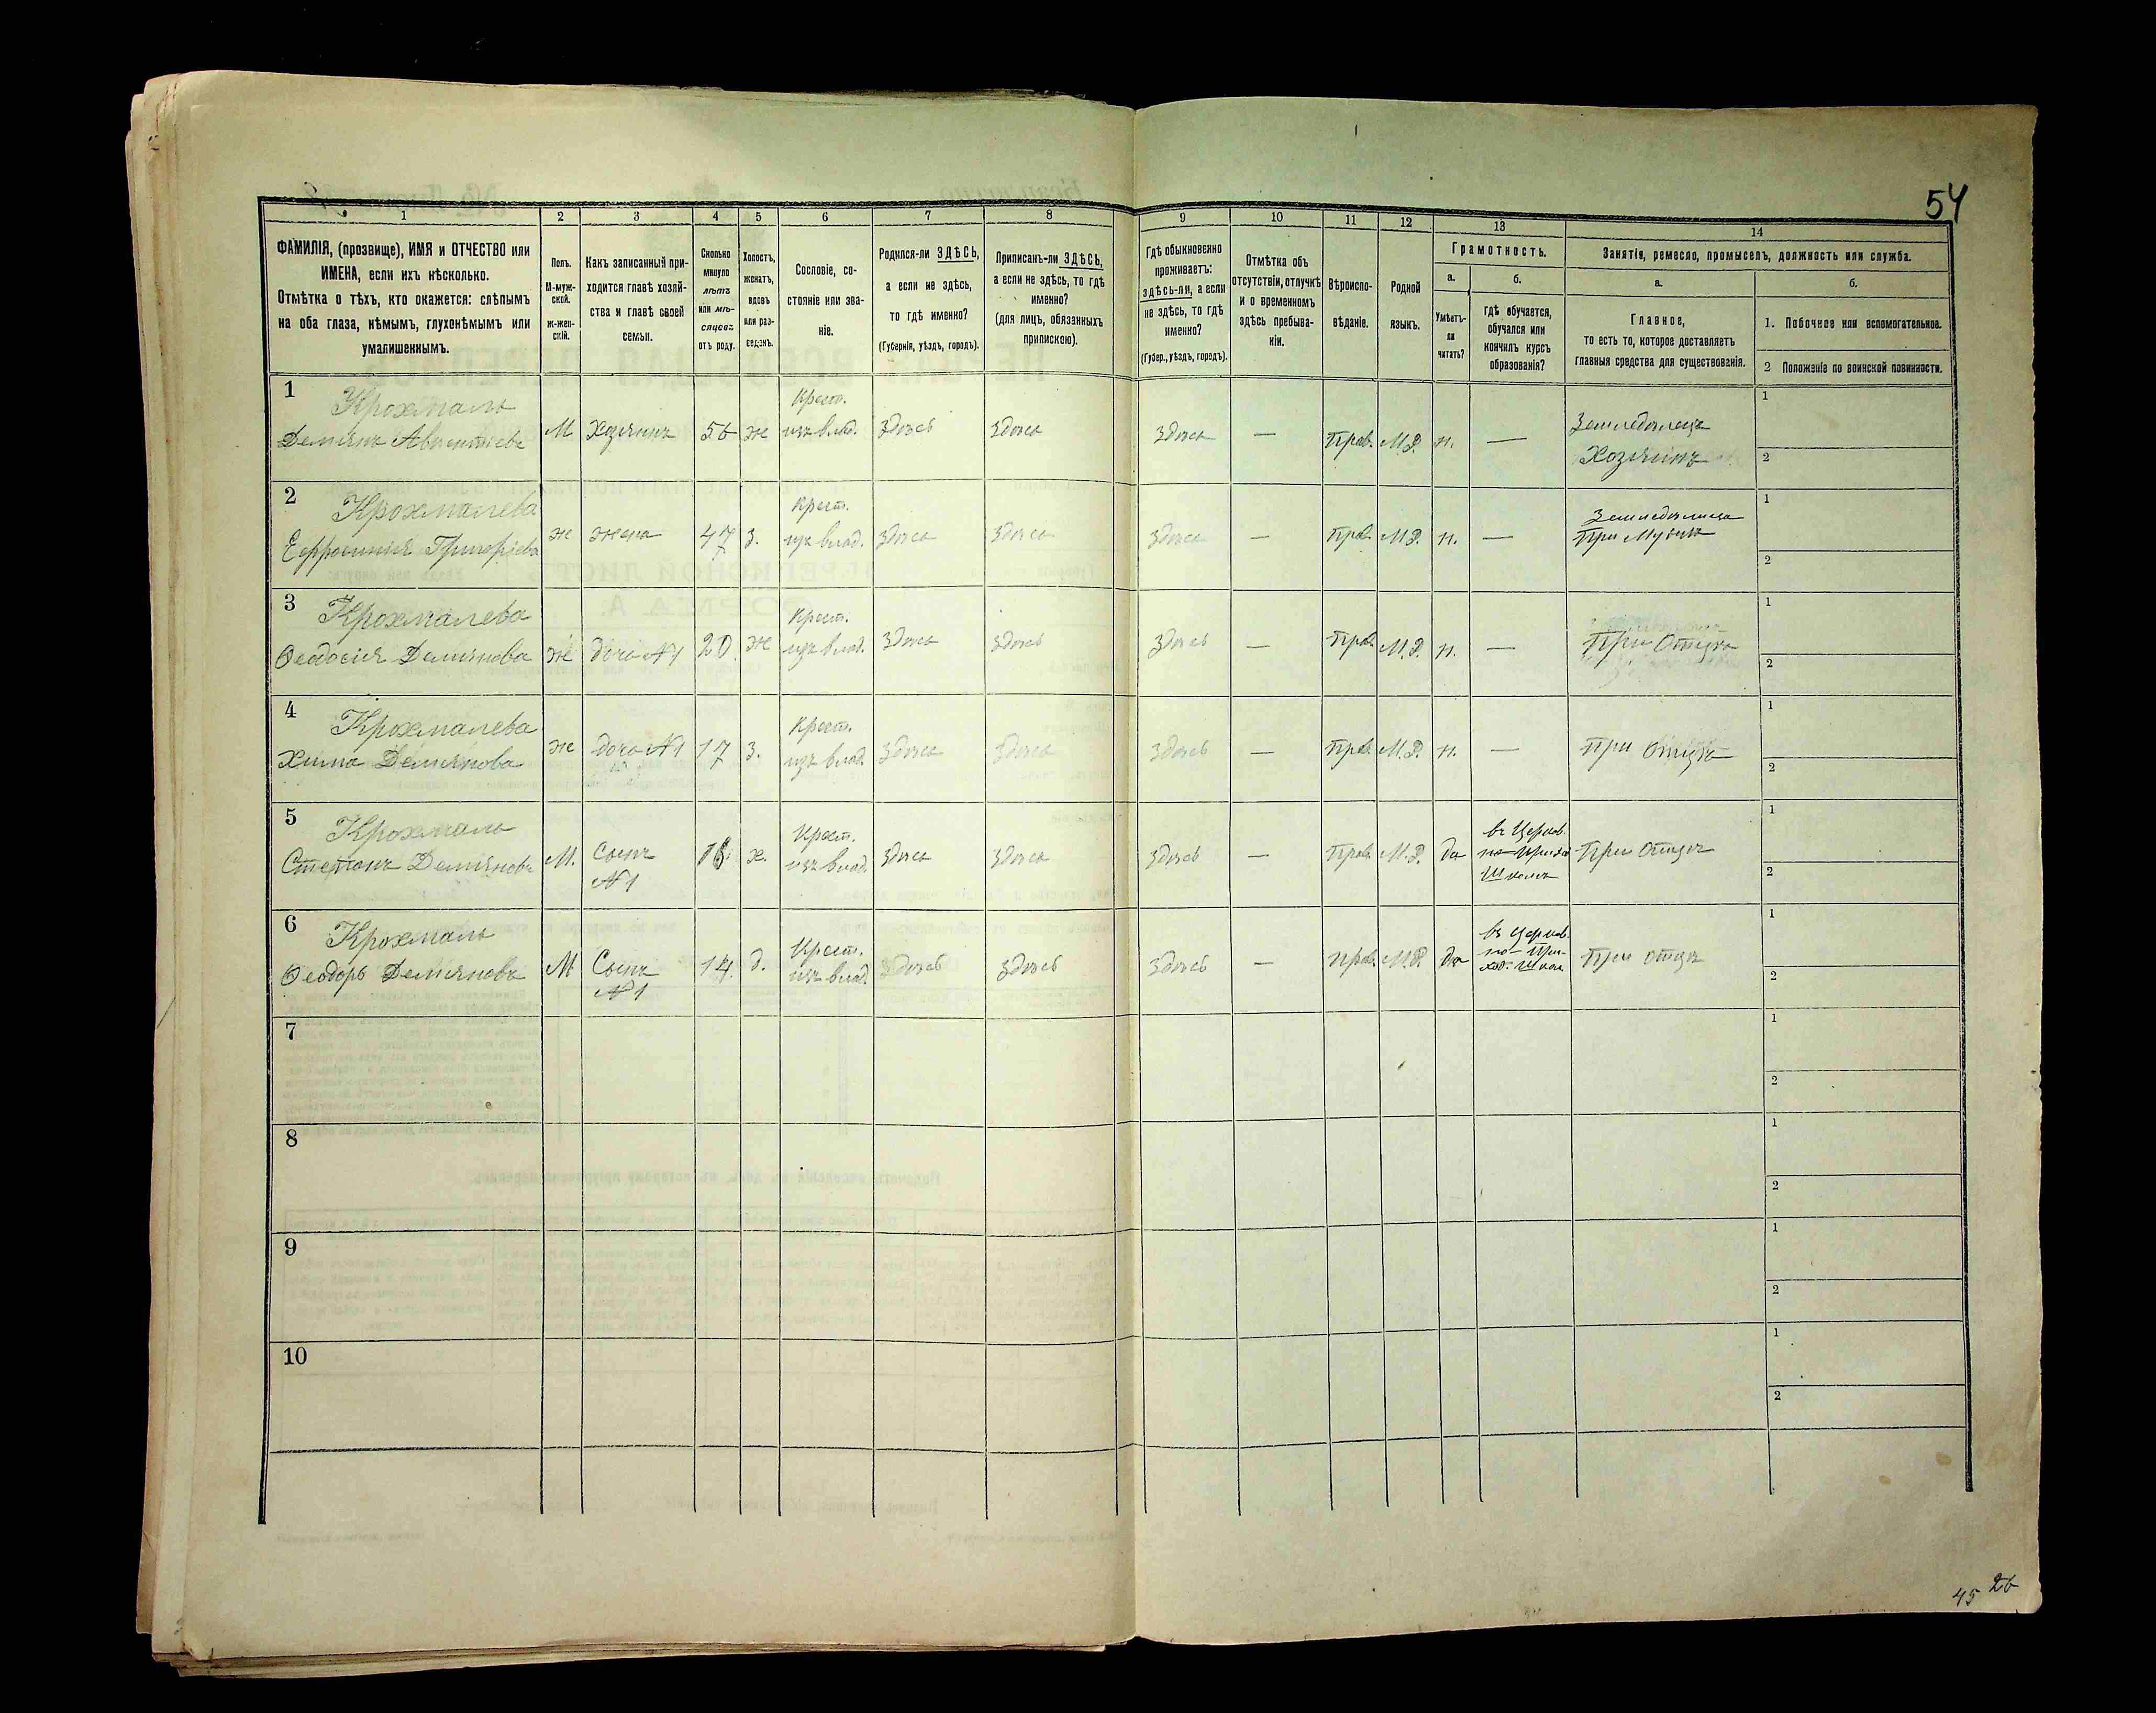 54
1 2 3 4 5 6 7 8 9 10 11 12 13 14
ФАМИЛІЯ, (прозвище), ИМЯ и ОТЧЕСТВО или
ИМЕНА, если ихъ нѣсколько.
Отмѣтка о тѣхъ, кто окажется: слѣпымъ
на оба глаза, нѣмымъ, глухонѣмымъ или
умалишеннымъ.
Полъ.
М-муж-
ской.
Ж-жен-
скій.
Какъ записанный при-
ходится главѣ хозяй-
ства и главѣ своей
семьи.
Сколько
минуло
лѣтъ
или мѣ-
сяцевъ
отъ роду.
Холостъ,
женатъ,
вдовъ
или раз-
веденъ.
Сословіе, со-
стояніе или зва-
ніе.
Родился-ли ЗДѢСЬ,
а если не здѣсь,
то гдѣ именно?
(Губернія, уѣздъ, городъ).
Приписанъ-ли ЗДѢСЬ,
а если не здѣсь, то гдѣ
именно?
(для лицъ, обязанныхъ
припискою).
Гдѣ обыкновенно
проживаетъ:
здѣсь-ли, а если
не здѣсь, то гдѣ
именно?
(Губер., уѣздъ, городъ).
Отмѣтка объ
отсутствіи, отлучкѣ
и о временномъ
здѣсь пребыва-
ніи.
Вѣроиспо-
вѣданіе.
Родной
языкъ.
Грамотность.
а.
Умѣетъ-
ли
читать?
б.
гдѣ обучается,
обучался или
кончилъ курсъ
образованія?
Занятія, ремесло, промыселъ, должность или служба.
а.
Главное,
то есть то, которое доставляетъ
главныя средства для существованія.
б.
1. Побочное или вспомогательное.
2 Положеніе по воинской повинности.
1 Крохмаль Крест. 1
Демянъ Авксентіевъ М Хозяинъ 56 ж изъ влад. здѣсь здѣсь здѣсь — Прав. М.Р. н. — Земледѣлецъ
Хозяинъ 2
2 Крохмалева Крест. Земледѣлица 1
Евфросинія Григоріева ж жена 47 з. изъ влад. здѣсь здѣсь здѣсь — Прав. М.Р. н. — При Мужѣ
2
3 Крохмалева Крест. 1
Ѳеодосія Демянова ж дочь №1 20 ж изъ влад. здѣсь здѣсь здѣсь — Прав. М.Р. н. — При Отцѣ
2
4 Крохмалева Крест. 1
Химa Демянова ж дочь №1 17 з. изъ влад. здѣсь здѣсь здѣсь — Прав. М.Р. н. — при отцѣ
2
5 Крохмаль Крест. въ Церков. 1
Степанъ Демяновъ М. Сынъ х. изъ влад. здѣсь здѣсь здѣсь — Прав. М.Р. да но-Приход. При отцѣ
№1 Школѣ 2
6 Крохмаль Крест. въ Церков. 1
Ѳеодоръ Демяновъ М Сынъ 14. д. изъ влад. здѣсь здѣсь здѣсь — Прав. М.Р. да но-При- При отцѣ
№1 ход. Школ. 2
7 1
2
8 1
2
9 1
2
10 1
2
45 26